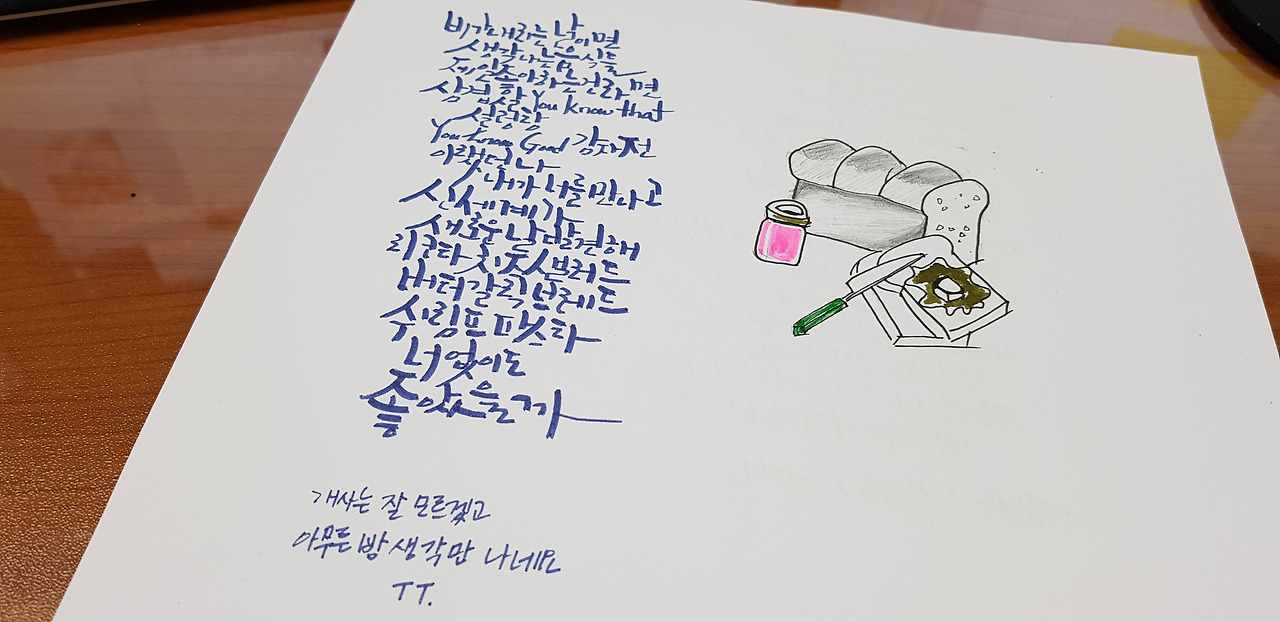 비가 내리는 날이면
생각나는 음식들
제일 좋아하는 건 라면
삼겹살 You know that
설렁탕
You know God 감자전
이랬던 나
내가 너를 만나고
신세계가
새로운 날 발견해
리코타 치즈 샐러드
버터갈릭브레드
쉬림프 파스타
너 없이도
좋았을까
개사는 잘 모르겠고
아무튼 빵 생각만 나네요
TT.